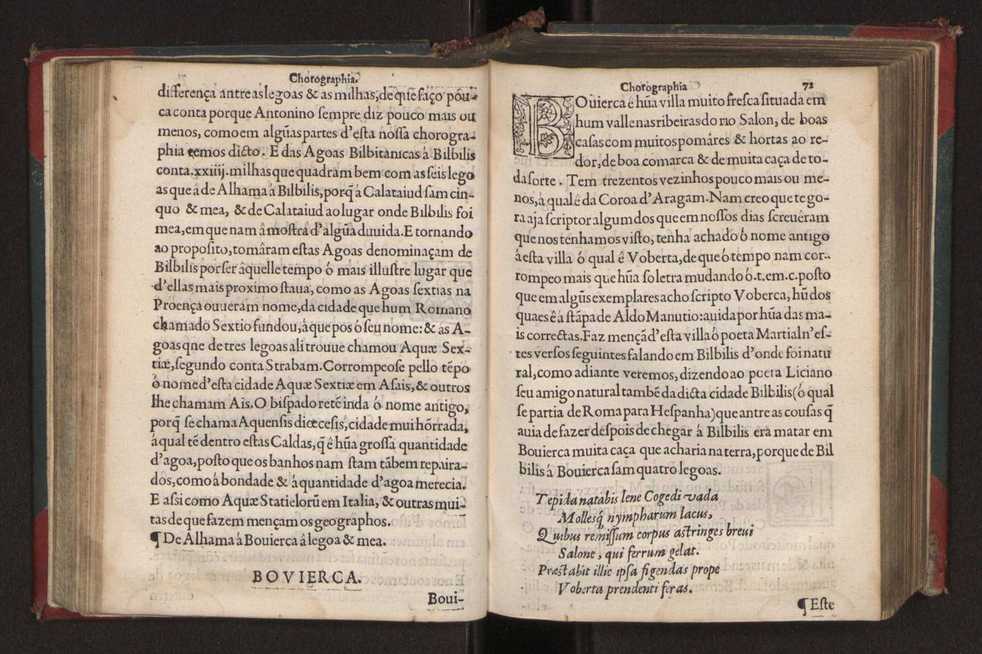 Chorographia.
differença antre as legoas & as milhas, de que faço pou-
ca conta porque Antonino sempre diz pouco mais ou
menos, como em algũas partes d'esta nossa chorogra-
phia temos dicto. E das Agoas Bilbitanicas â Bilbilis
conta.xxiiij. milhas que quadram bem com as seis lego
as que â de Alhama â Bilbilis, porq̃ â Calataiud sam cin-
quo & mea, & de Calataiud ao lugar onde Bilbilis foi
mea, em que nam â mostra d'algũa duuida. E tornando
ao proposito, tomâram estas Agoas denominaçam de
Bilbilis por ser âquelle tempo ó mais illustre lugar que
d'ellas mais proximo staua, como as Agoas sextias na
Proença ouueram nome, da cidade que hum Romano
chamado Sextio fundou, â que pos ó seu nome: & as A-
goas qne de tres legoas ali trouue chamou Aquæ Sex-
tiæ, segundo conta Strabam. Corrompese pello tẽpo
ó nome d'esta cidade Aquæ Sextiæ em Asais, & outros
lhe chamam Ais. O bispado retẽ inda ó nome antigo,
porq̃ se chama Aquensis diœcesis, cidade mui hõrrada,
â qual tẽ dentro estas Caldas, q̃ ê hũa grossa quantidade
d'agoa, posto que os banhos nam stam tãbem repaira-
dos, como â bondade & â quantidade d'agoa merecia.
E assi como Aquæ Statielorũ em Italia, & outras mui-
tas de que fazem mençam os geographos.
¶ De Alhama â Bouierca â legoa & mea.
BOVIERCA.
Boui-
Chorographia 72
BOuierca ê hũa villa muito fresca situada em
hum valle nas ribeiras do rio Salon, de boas
casas com muitos pomâres & hortas ao re-
dor, de boa comarca & de muita caça de to-
da sorte. Tem trezentos vezinhos pouco mais ou me-
nos, â qual ê da Coroa d'Aragam. Nam creo que tego-
ra aja scriptor algum dos que em nossos dias screuêram
que nos tenhamos visto, tenha achado ó nome antigo
â esta villa ó qual ê Voberta, de que ó tempo nam cor-
rompeo mais que hũa so letra mudando ó.t.em.c. posto
que em algũs exemplares acho scripto Voberca, hũ dos
quaes ê â stãpa de Aldo Manutio: auida por hũa das ma-
is correctas. Faz mençã d'esta villa ó poeta Martial n'es-
tes versos seguintes falando em Bilbilis d'onde foi natu
ral, como adiante veremos, dizendo ao poeta Liciano
seu amigo natural tambẽ da dicta cidade Bilbilis (ó qual
se partia de Roma para Hespanha) que antre as cousas q̃
auia de fazer despois de chegar â Bilbilis era matar em
Bouierca muita caça que acharia na terra, porque de Bil
bilis â Bouierca sam quatro legoas.
Tepida natabis lene Cogedi vada
Mollesq̃ nympharum lacus,
Quibus remissum corpus astringes breui
Salone, qui ferrum gelat.
Præstabit illic ipsa figendas prope
Voberta prendenti feras.
¶ Este